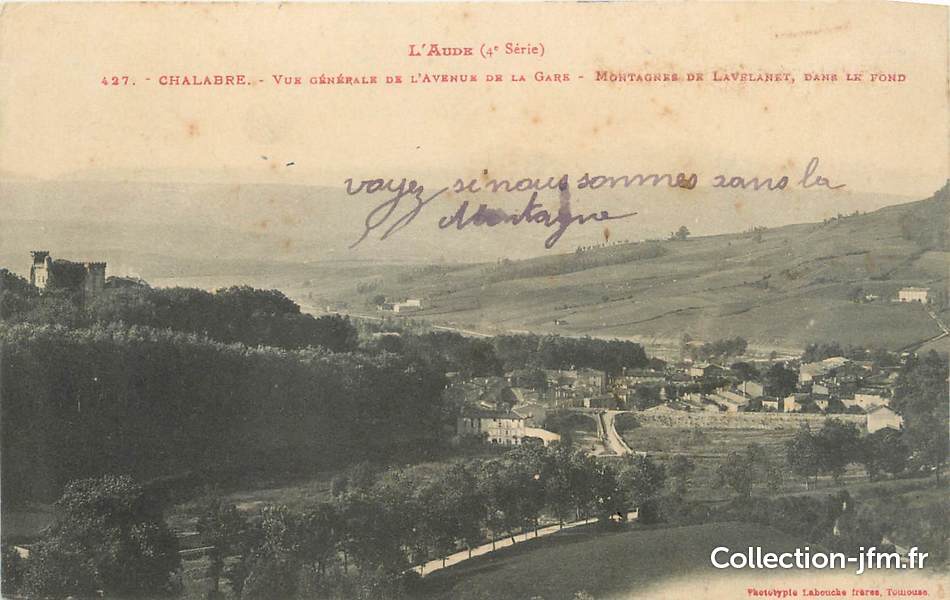 L'AUDE (4e Série)
427. - CHALABRE. - VUE GÉNÉRALE DE L'AVENUE DE LA GARE - MONTAGNES DE LAVELANET, DANS LE FOND
voyez si nous sommes dans la
Montagne
Collection-jfm.fr
Phototypie Labouche frères, Toulouse.